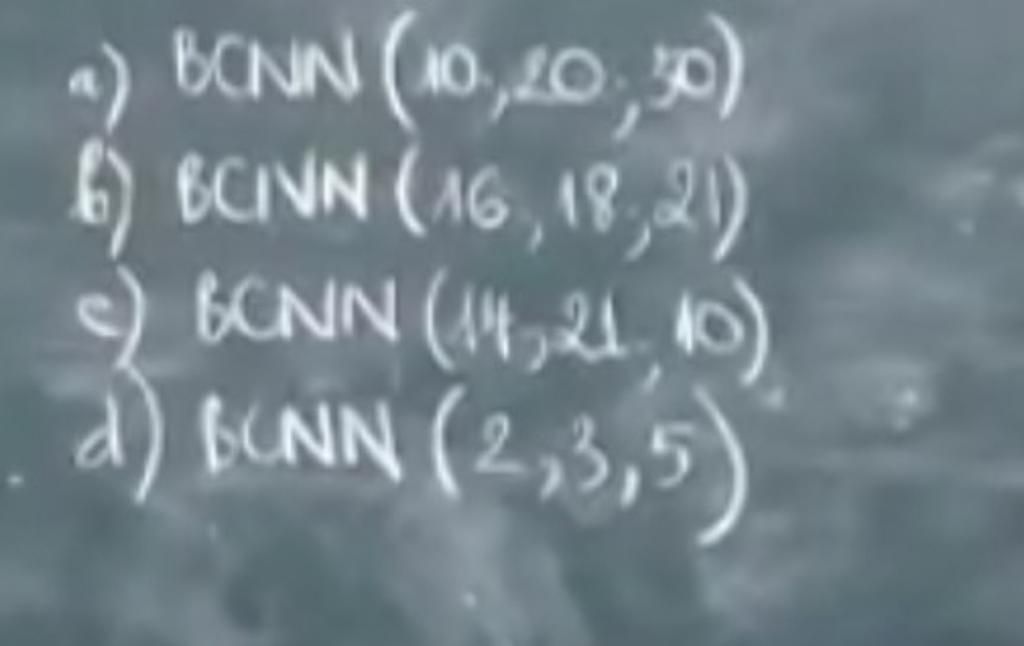 a) BCNN (10, 20, 30)
b) BCNN (16, 18, 21)
c) BCNN (14, 21, 10)
d) BCNN (2, 3, 5)